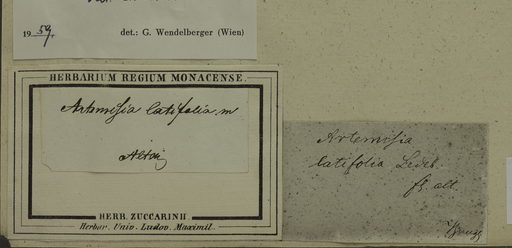 1959. det.: G. Wendelberger (Wien)
HERBARIUM REGIUM MONACENSE.
Artemisia latifolia m
Altai
HERB. ZUCCARINII
Herbar. Univ. Ludov. Maximil.
Artemisia
latifolia Ledeb.
fl. alt.